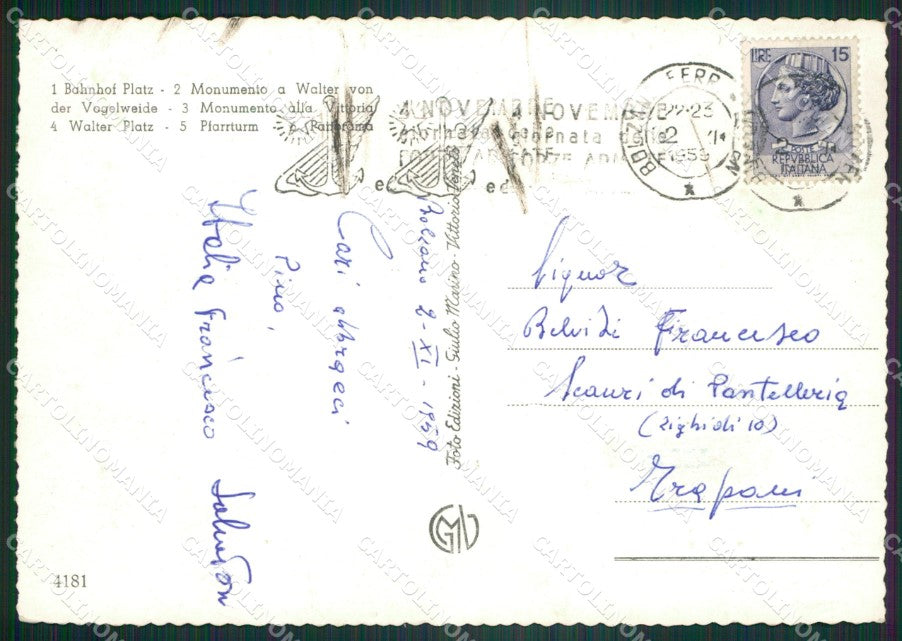 1 Bahnhof Platz - 2 Monumento a Walter von
der Vogelweide - 3 Monumento alla Vittoria
4 Walter Platz - 5 Pfarrturm - 6 Panorama
4 NOVEMBRE 4 NOVEMBRE
giornata
FORZE ARMATE
BOLZANO FERR
22-23
2
1959
LIRE 15
POSTE
REPVBBLICA
ITALIANA
Bolzano 2-XI-1959
Cari abbracci
Pino,
Italia Francesco Salvatore
Foto Edizioni - Giulio Marino - Vittorio Veneto
Signor
Belvisi Francesco
Scauri di Pantelleria
(Zighidi 10)
Trapani
GMV
4181
CARTOLINOMANIA